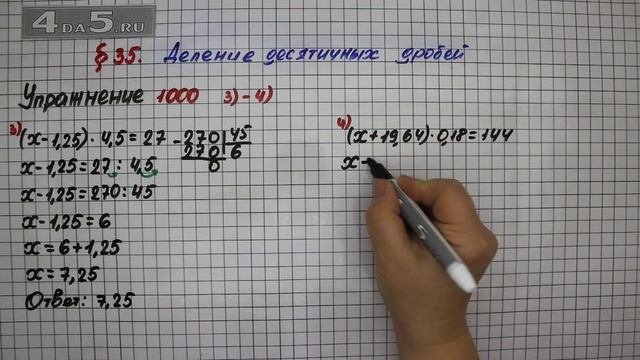 4DA5.RU
§ 35. Деление десятичных дробей
Упражнение 1000 3)-4)
3) (x-1,25)·4,5=27
x-1,25=27:4,5
x-1,25=270:45
x-1,25=6
x=6+1,25
x=7,25
Ответ: 7,25
-270|45
270|6
0
4) (x+19,64)·0,18=144
x